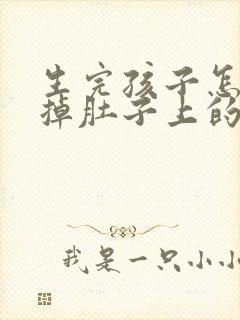 生完孩子怎
掉肚子上的
我是一只小小